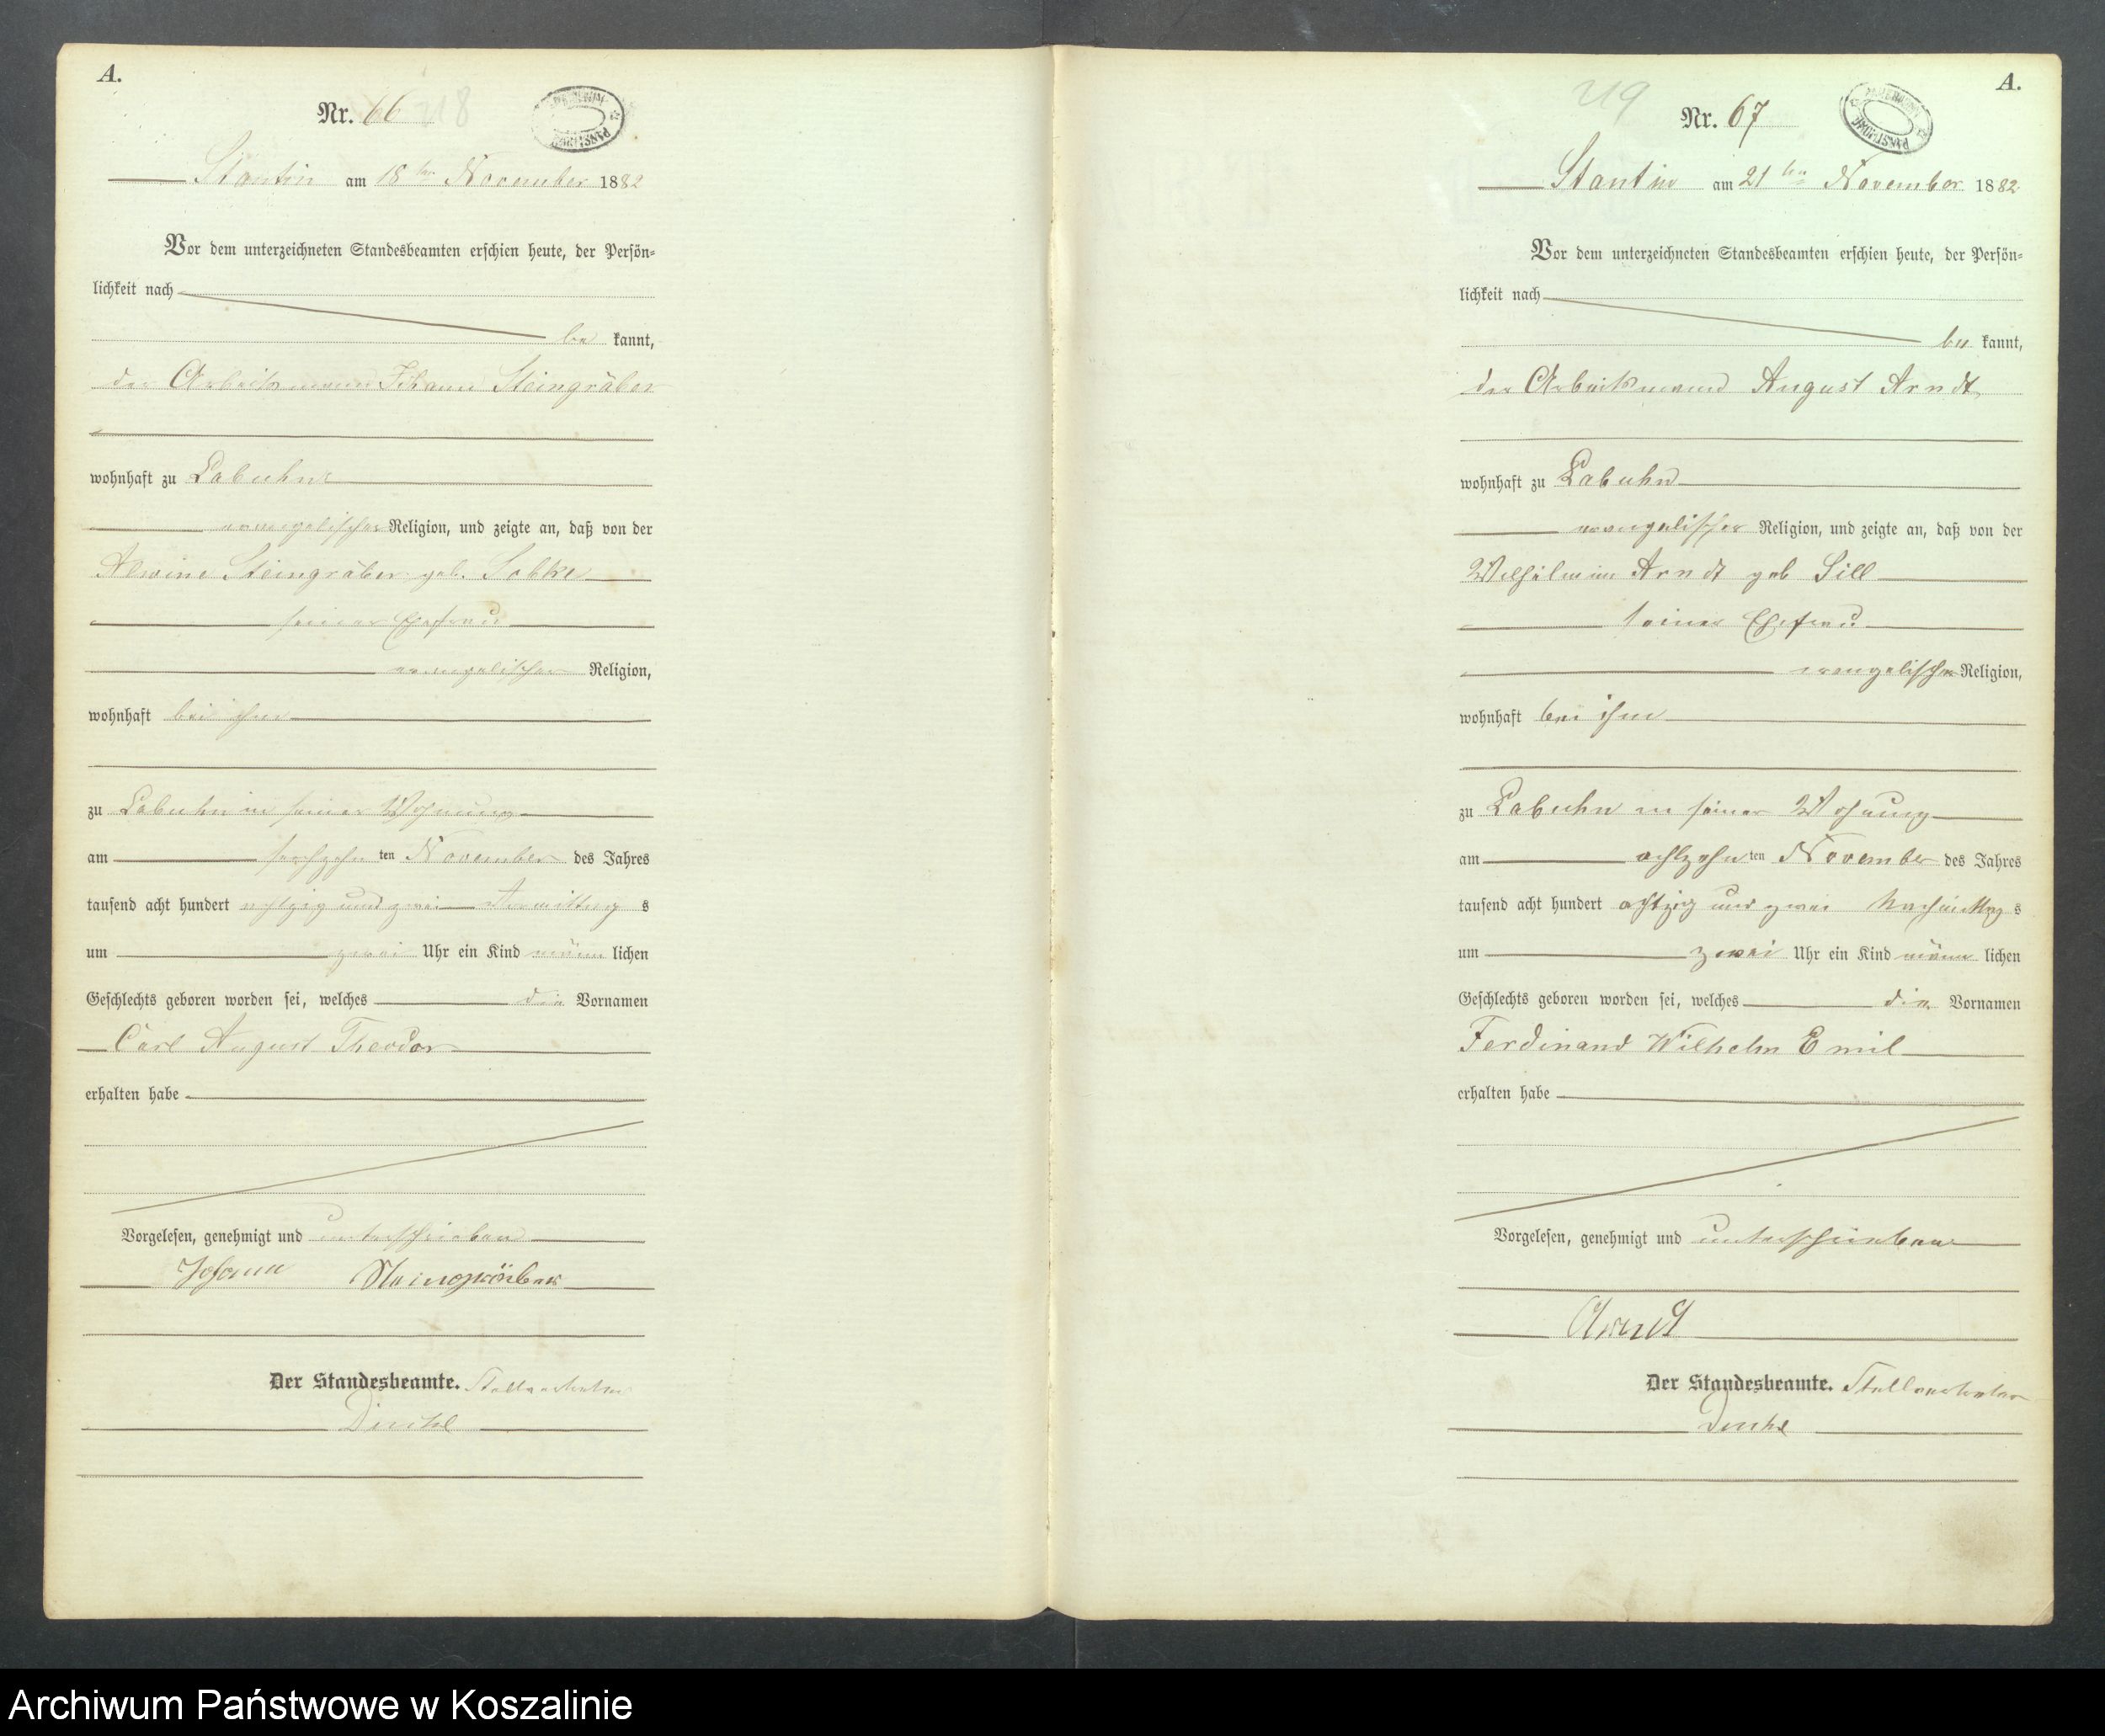 A.
Nr. 66 218
Stantin am 18ten November 1882
Vor dem unterzeichneten Standesbeamten erschien heute, der Persön-
lichkeit nach
be kannt,
der Arbeitsmann Johann Steingräber
wohnhaft zu Labuhn
evangelischer Religion, und zeigte an, daß von der
Alwine Steingräber geb.
seiner Ehefrau
evangelischer Religion,
wohnhaft bei ihm
zu Labuhn in seiner Wohnung
am sechzehn ten November des Jahres
tausend acht hundert achtzig und zwei Vormittag s
um zwei Uhr ein Kind männ lichen
Geschlechts geboren worden sei, welches die Vornamen
Carl August Theodor
erhalten habe
Vorgelesen, genehmigt und unterschrieben
Johann Steingräber
Der Standesbeamte. Stellvertreter
A.
219
Nr. 67
Stantin am 21ten November 1882
Vor dem unterzeichneten Standesbeamten erschien heute, der Persön-
lichkeit nach
be kannt,
der Arbeitsmann August Arndt
wohnhaft zu Labuhn
evangelischer Religion, und zeigte an, daß von der
Wilhelmine Arndt geb Sill
seiner Ehefrau
evangelischer Religion,
wohnhaft bei ihm
zu Labuhn in seiner Wohnung
am achtzehn ten November des Jahres
tausend acht hundert achtzig und zwei Nachmittag s
um zwei Uhr ein Kind männ lichen
Geschlechts geboren worden sei, welches die Vornamen
Ferdinand Wilhelm Emil
erhalten habe
Vorgelesen, genehmigt und unterschrieben
Arndt
Der Standesbeamte. Stellvertreter
Archiwum Państwowe w Koszalinie